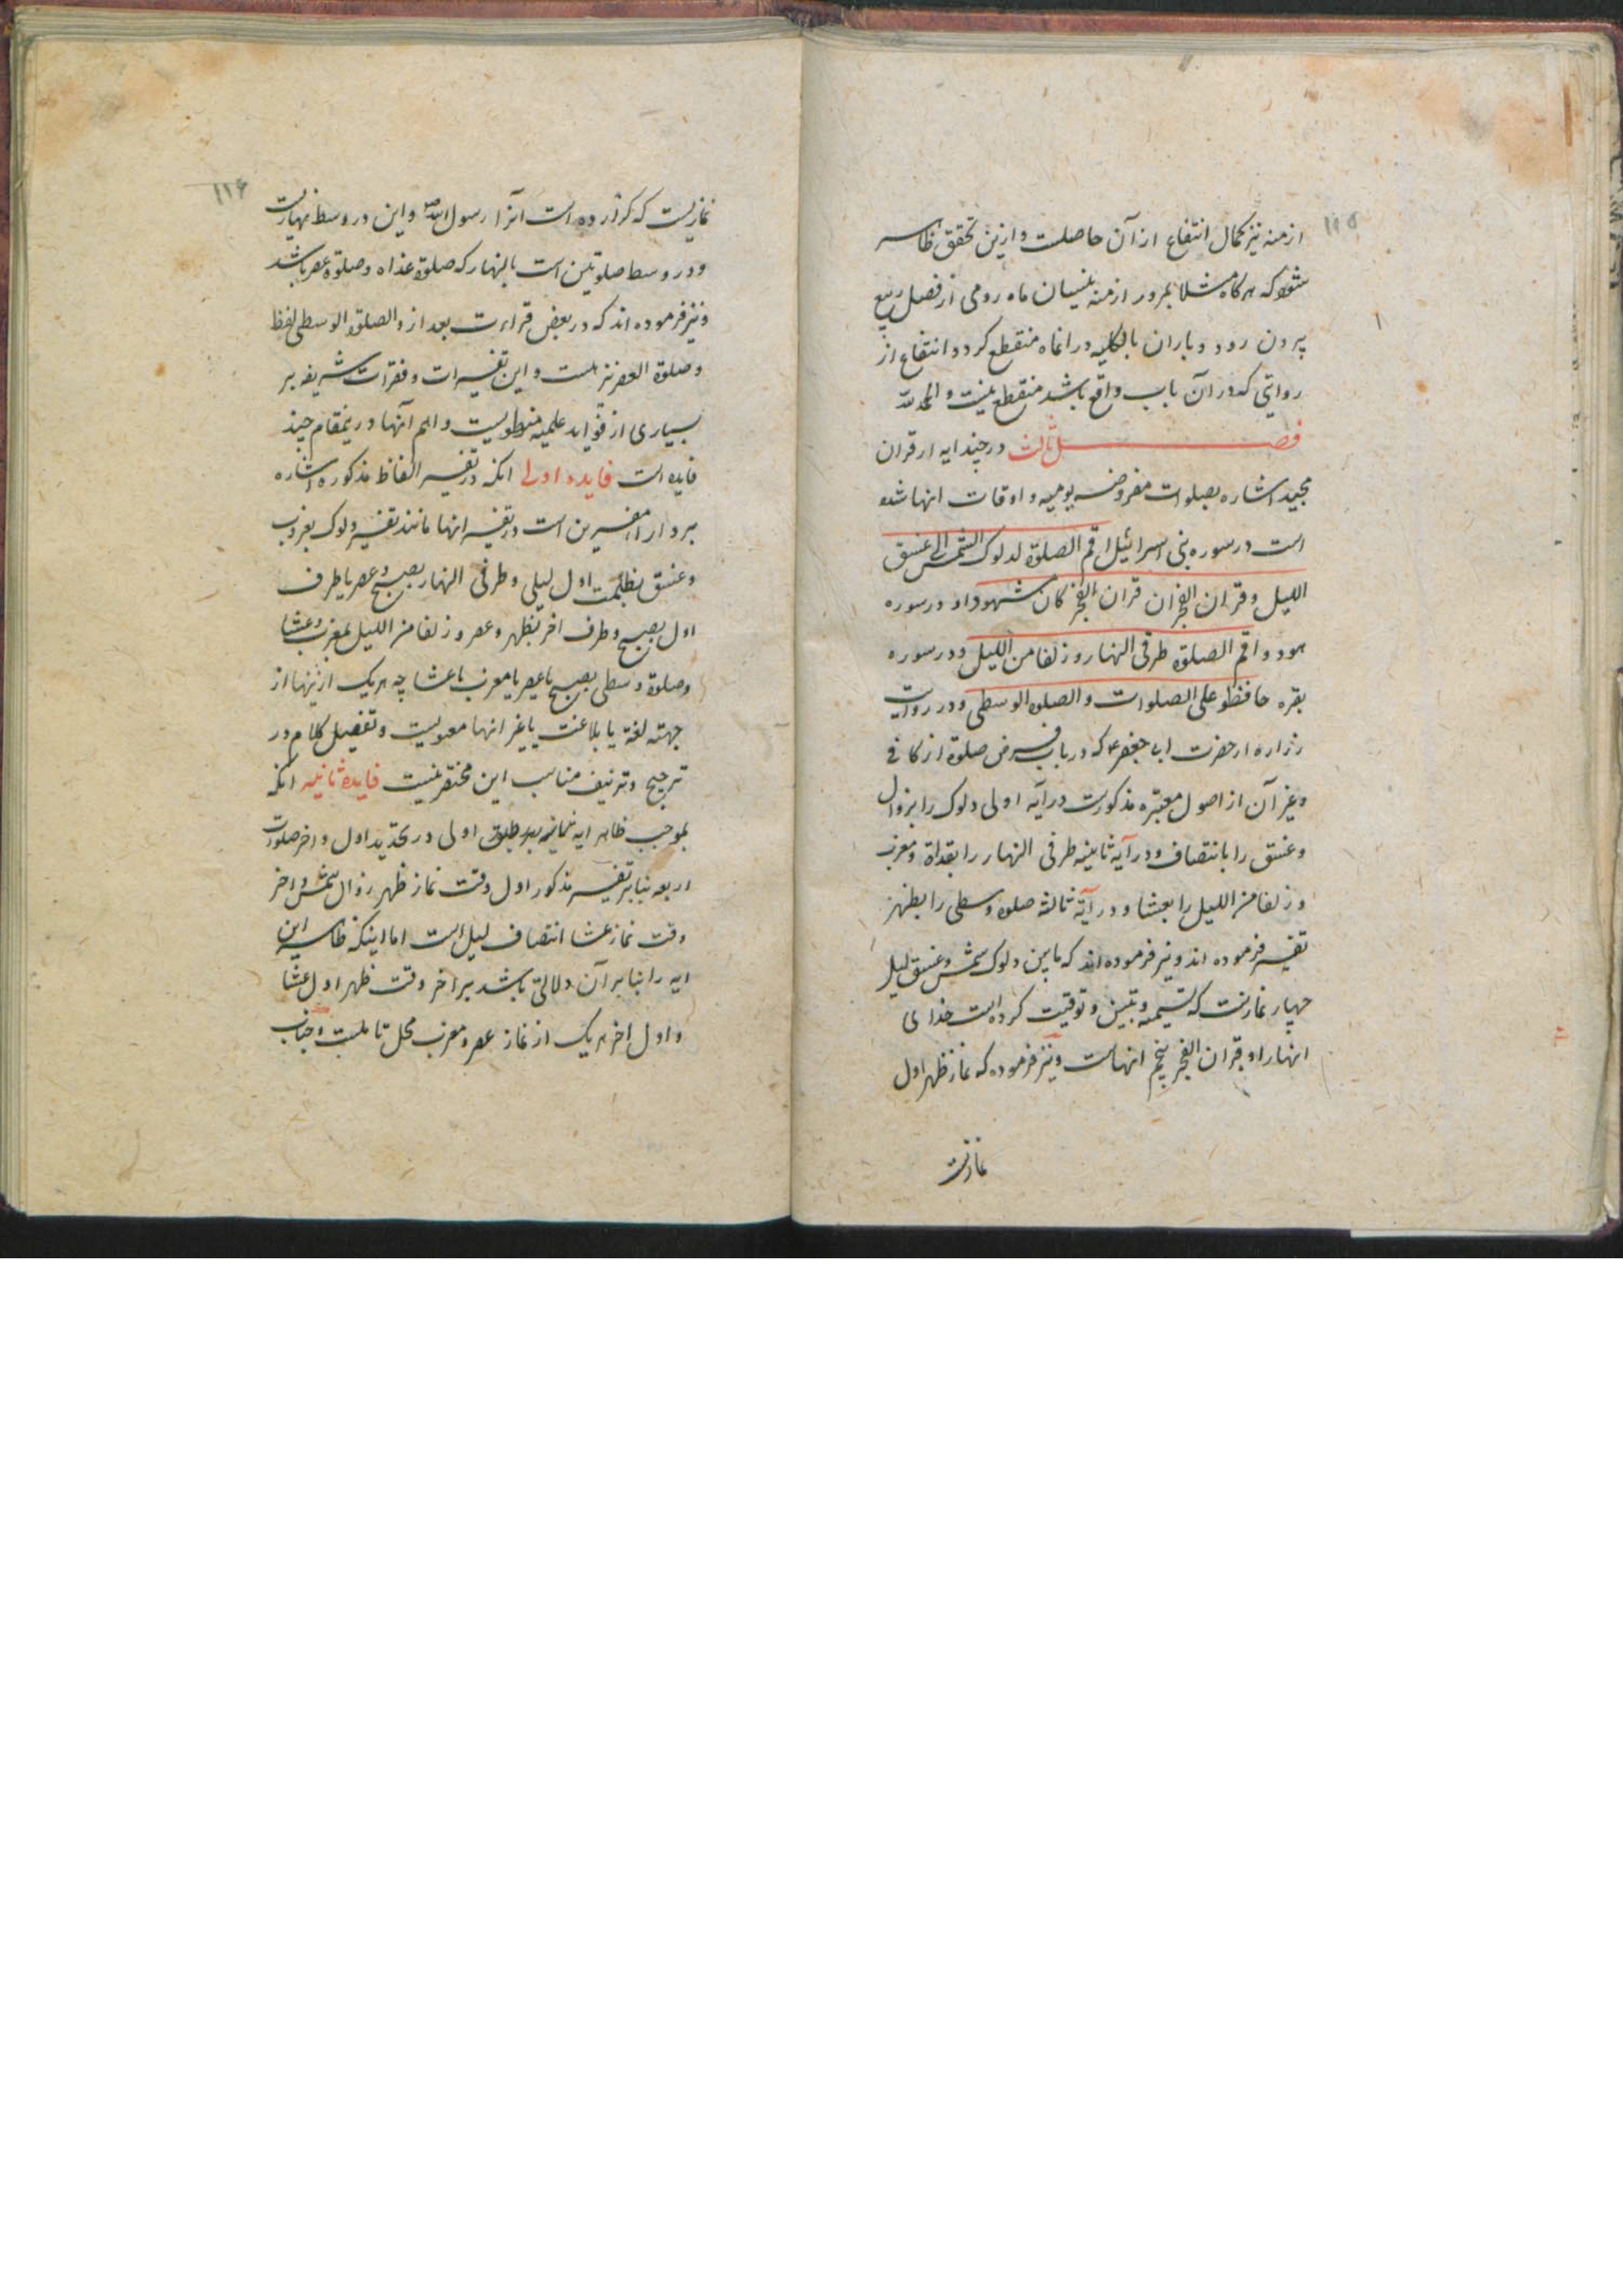 ۱۱۵
ازمنه نیز کمال انتفاع از آن حاصلست و ازین تحقق ظاهر
شود که هر گاه مثلا بمرور ازمنه نیسان ماه رومی از فصل ربیع
بیرون رود و باران بالکلیه در انماه منقطع کردد انتفاع از
روایتی که در آن باب واقع باشد منقطع نیست و الحمد لله
فصل ثالث در چند ایه از قران
مجید اشاره بصلوات مفروضه یومیه و اوقات انها شده
است در سوره بنی اسرائیل اقم الصلوة لدلوک الشمس الی غسق
اللیل و قران الفجر ان قران الفجر کان مشهودا و در سوره
هود و اقم الصلوة طرفی النهار و زلفا من اللیل و در سوره
بقره حافظو علی الصلوات و الصلوه الوسطی و در روایت
زراره از حضرت ابی جعفر ع که در باب فرض صلوة از کافی
و غیر آن از اصول معتبره مذکورست در آیه اولی دلوک را بزوال
و غسق را بانتصاف و در آیه ثانیه طرفی النهار را بغداة و مغرب
و زلفا من اللیل را بعشا و در آیه ثالثه صلوه وسطی را بظهر
تفسیر فرموده اند و نیز فرموده اند که مابین دلوک شمس و غسق لیل
چهار نمازست که تسمیه و تبیین و توقیت کرده است خدای
انها را و قران الفجر پنجم انهاست و نیز فرموده که نماز ظهر اول
نمازیست
۱۱۶
نمازیست که کزارده است انرا رسول الله ص و این در وسط نهارست
و در وسط صلوتین است بالنهار که صلوة غداه و صلوة عصر باشد
و نیز فرموده اند که در بعض قراءت بعد از و الصلوة الوسطی لفظ
و صلوة العصر نیز هست و این تفسیرات و فقرات شریفه بر
بسیاری از فواید علمیه منطویست و اهم آنها درینمقام چند
فایده است فایده اولی انکه در تفسیر الفاظ مذکوره اشاره
برد اراء مفسرین است در تفسیر انها مانند تفسیر دلوک بغروب
و غسق بظلمت اول لیلی و طرفی النهار بصبح و عصر یا طرف
اول بصبح و طرف اخر بظهر و عصر و زلفا من اللیل بمغرب و عشا
و صلوة وسطی بصبح یا عصر یا مغرب یا عشا چه هریک ازینها از
جهته لغة یا بلاغت یا غیر انها معیوبست و تفصیل کلام در
ترجیح و تزئیف مناسب این مختصر نیست فایده ثانیه انکه
بموجب ظاهر ایه اولی در تحدید اول و اخر صلوات
اربعه بنابر تفسیر مذکور اول وقت نماز ظهر زوال شمس و اخر
وقت نماز عشا انتصاف لیل است اما اینکه ظاهر این
ایه را بنابر آن دلالتی باشد بر اخر وقت ظهر و اول عشا
و اول و اخر هریک از نماز عصر و مغرب محل تاملست و جناب